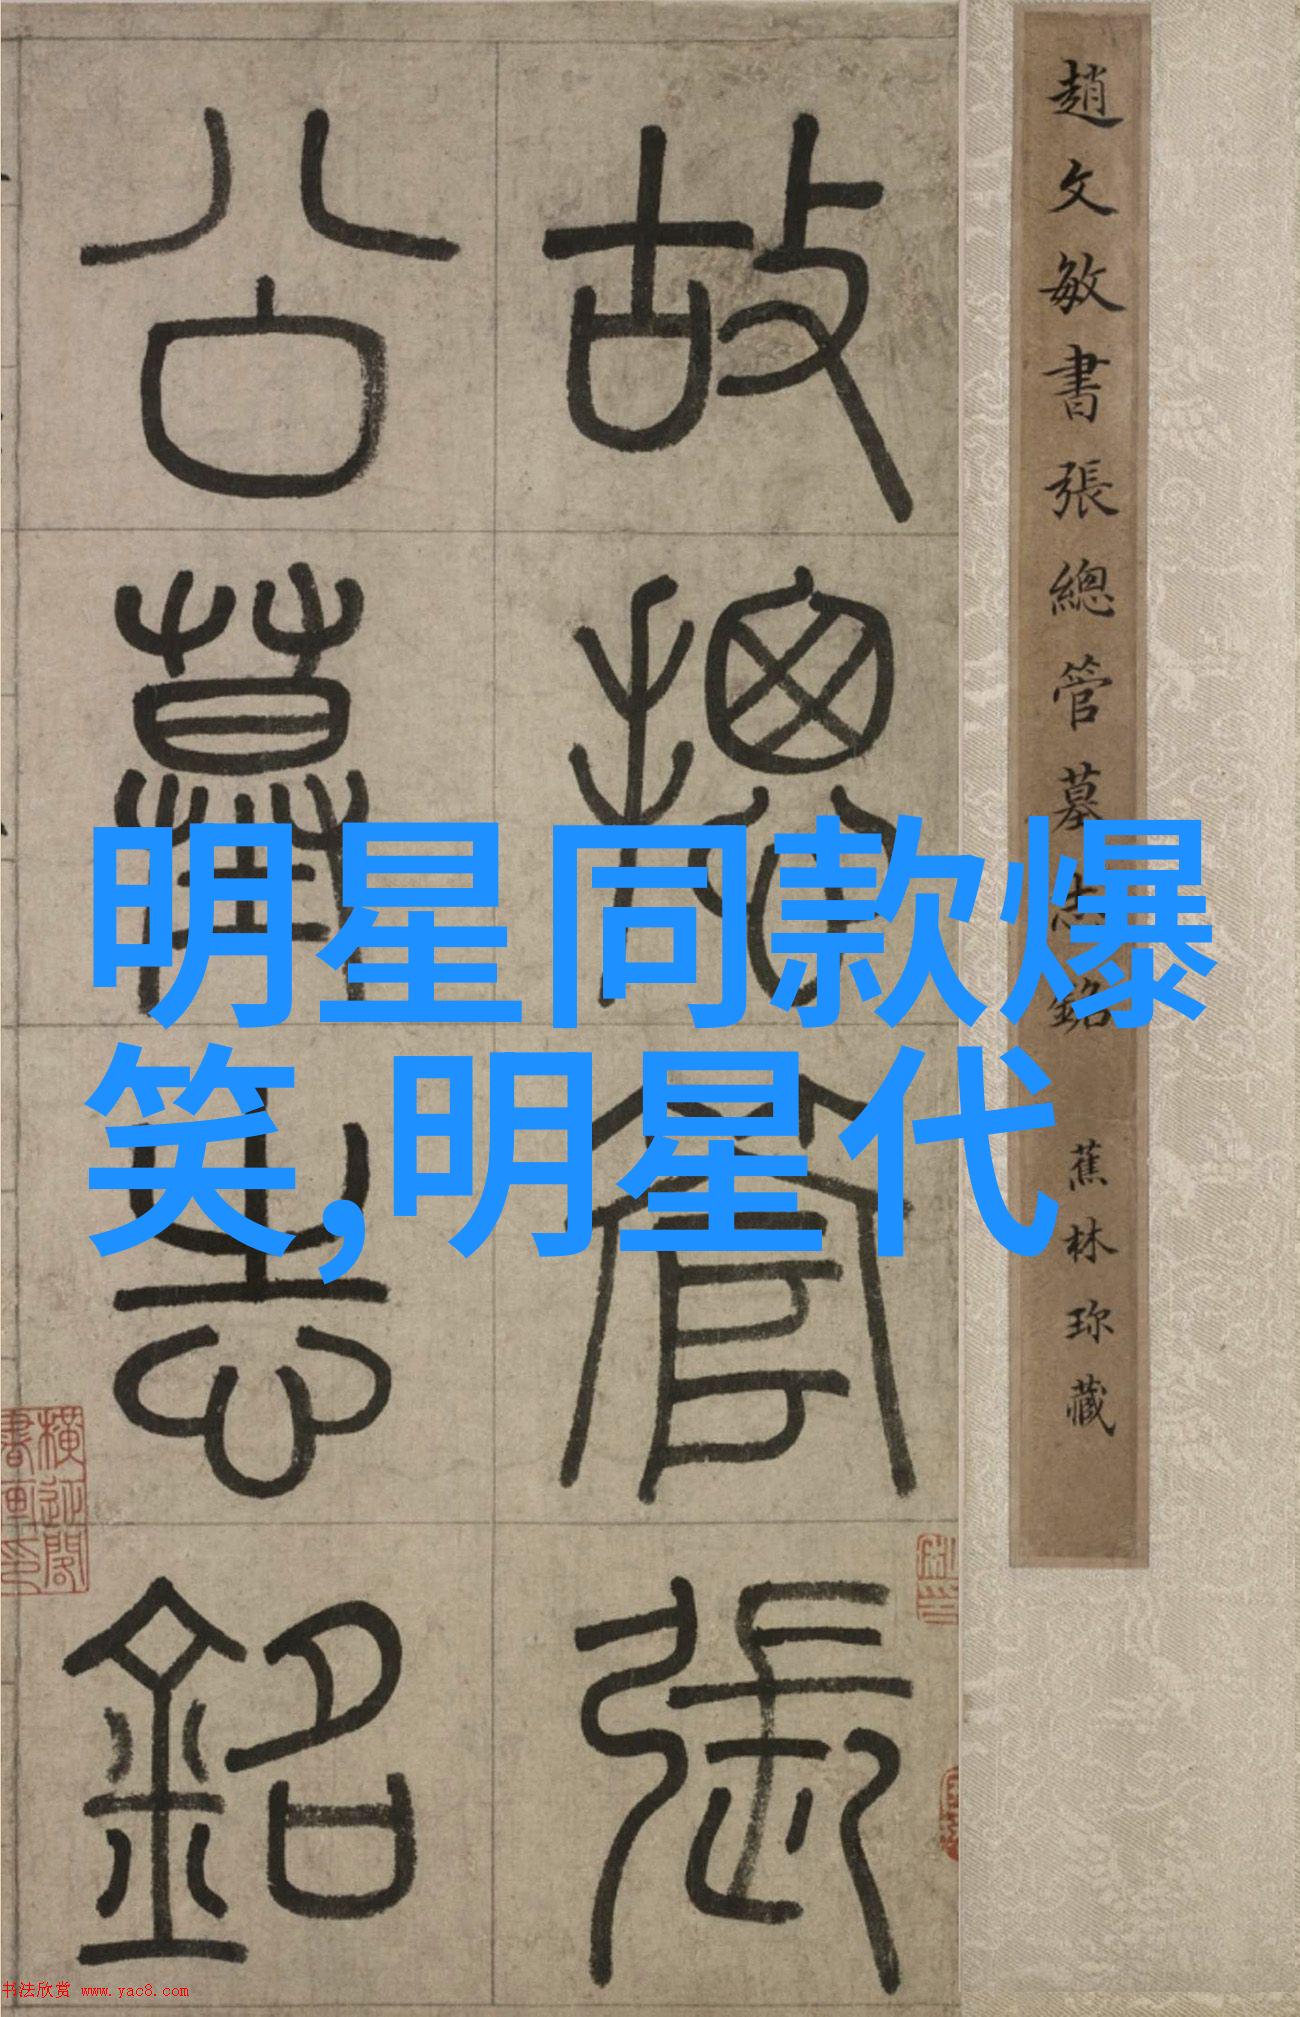 趙文敏書張總管墓志銘 蕉林珍藏
故摠管張
公墓志銘
明星同款爆
笑,明星代
书法欣赏 www.yac8.com